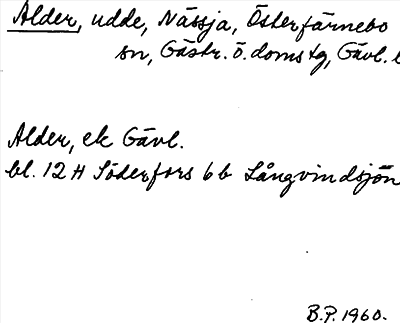 Alder, udde, Nässja, Österfärnebo
sn, Gästr. ö. domstg, Gävl.
Alder, ek Gävl.
bl. 12 H Söderfors 6 b Långvindsjön
B.P. 1960.